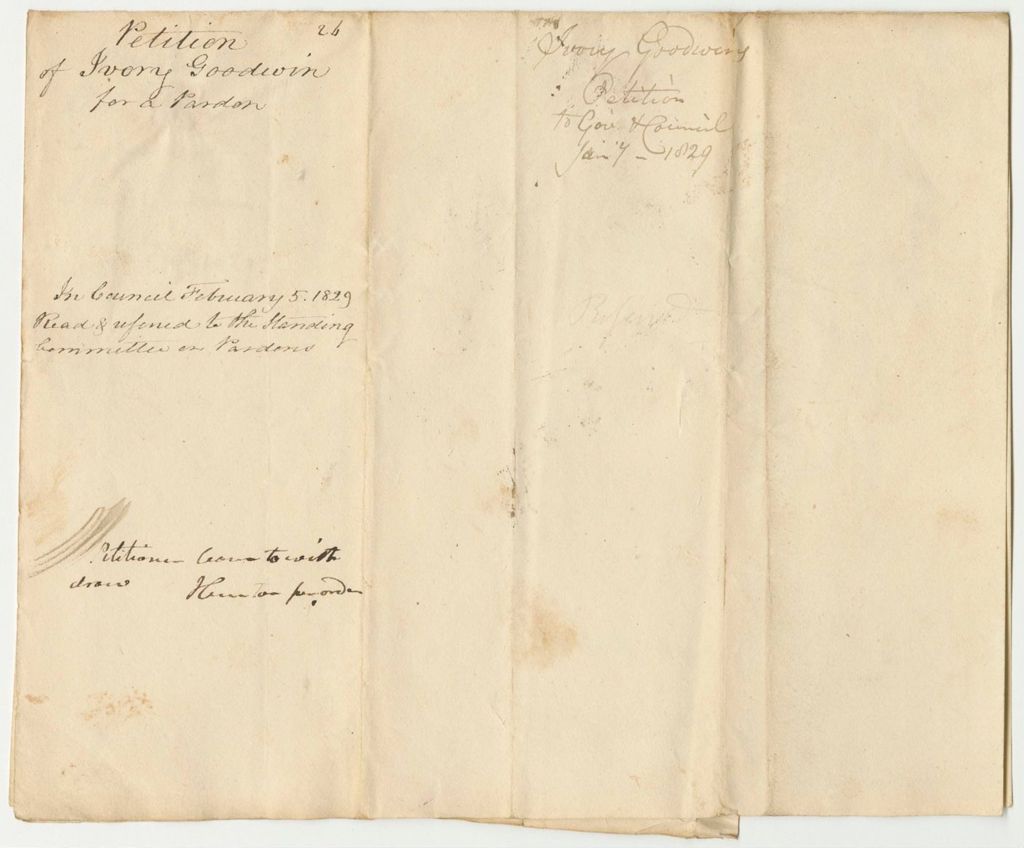 26
Petition
of Ivory Goodwin
for a Pardon
In Council February 5. 1829
Read & referred to the Standing
Committee on Pardons
Petitioner leave to with
draw
Hunton per order
Ivory Goodwins
Petition
to Gov. & Council
Jany 7 - 1829